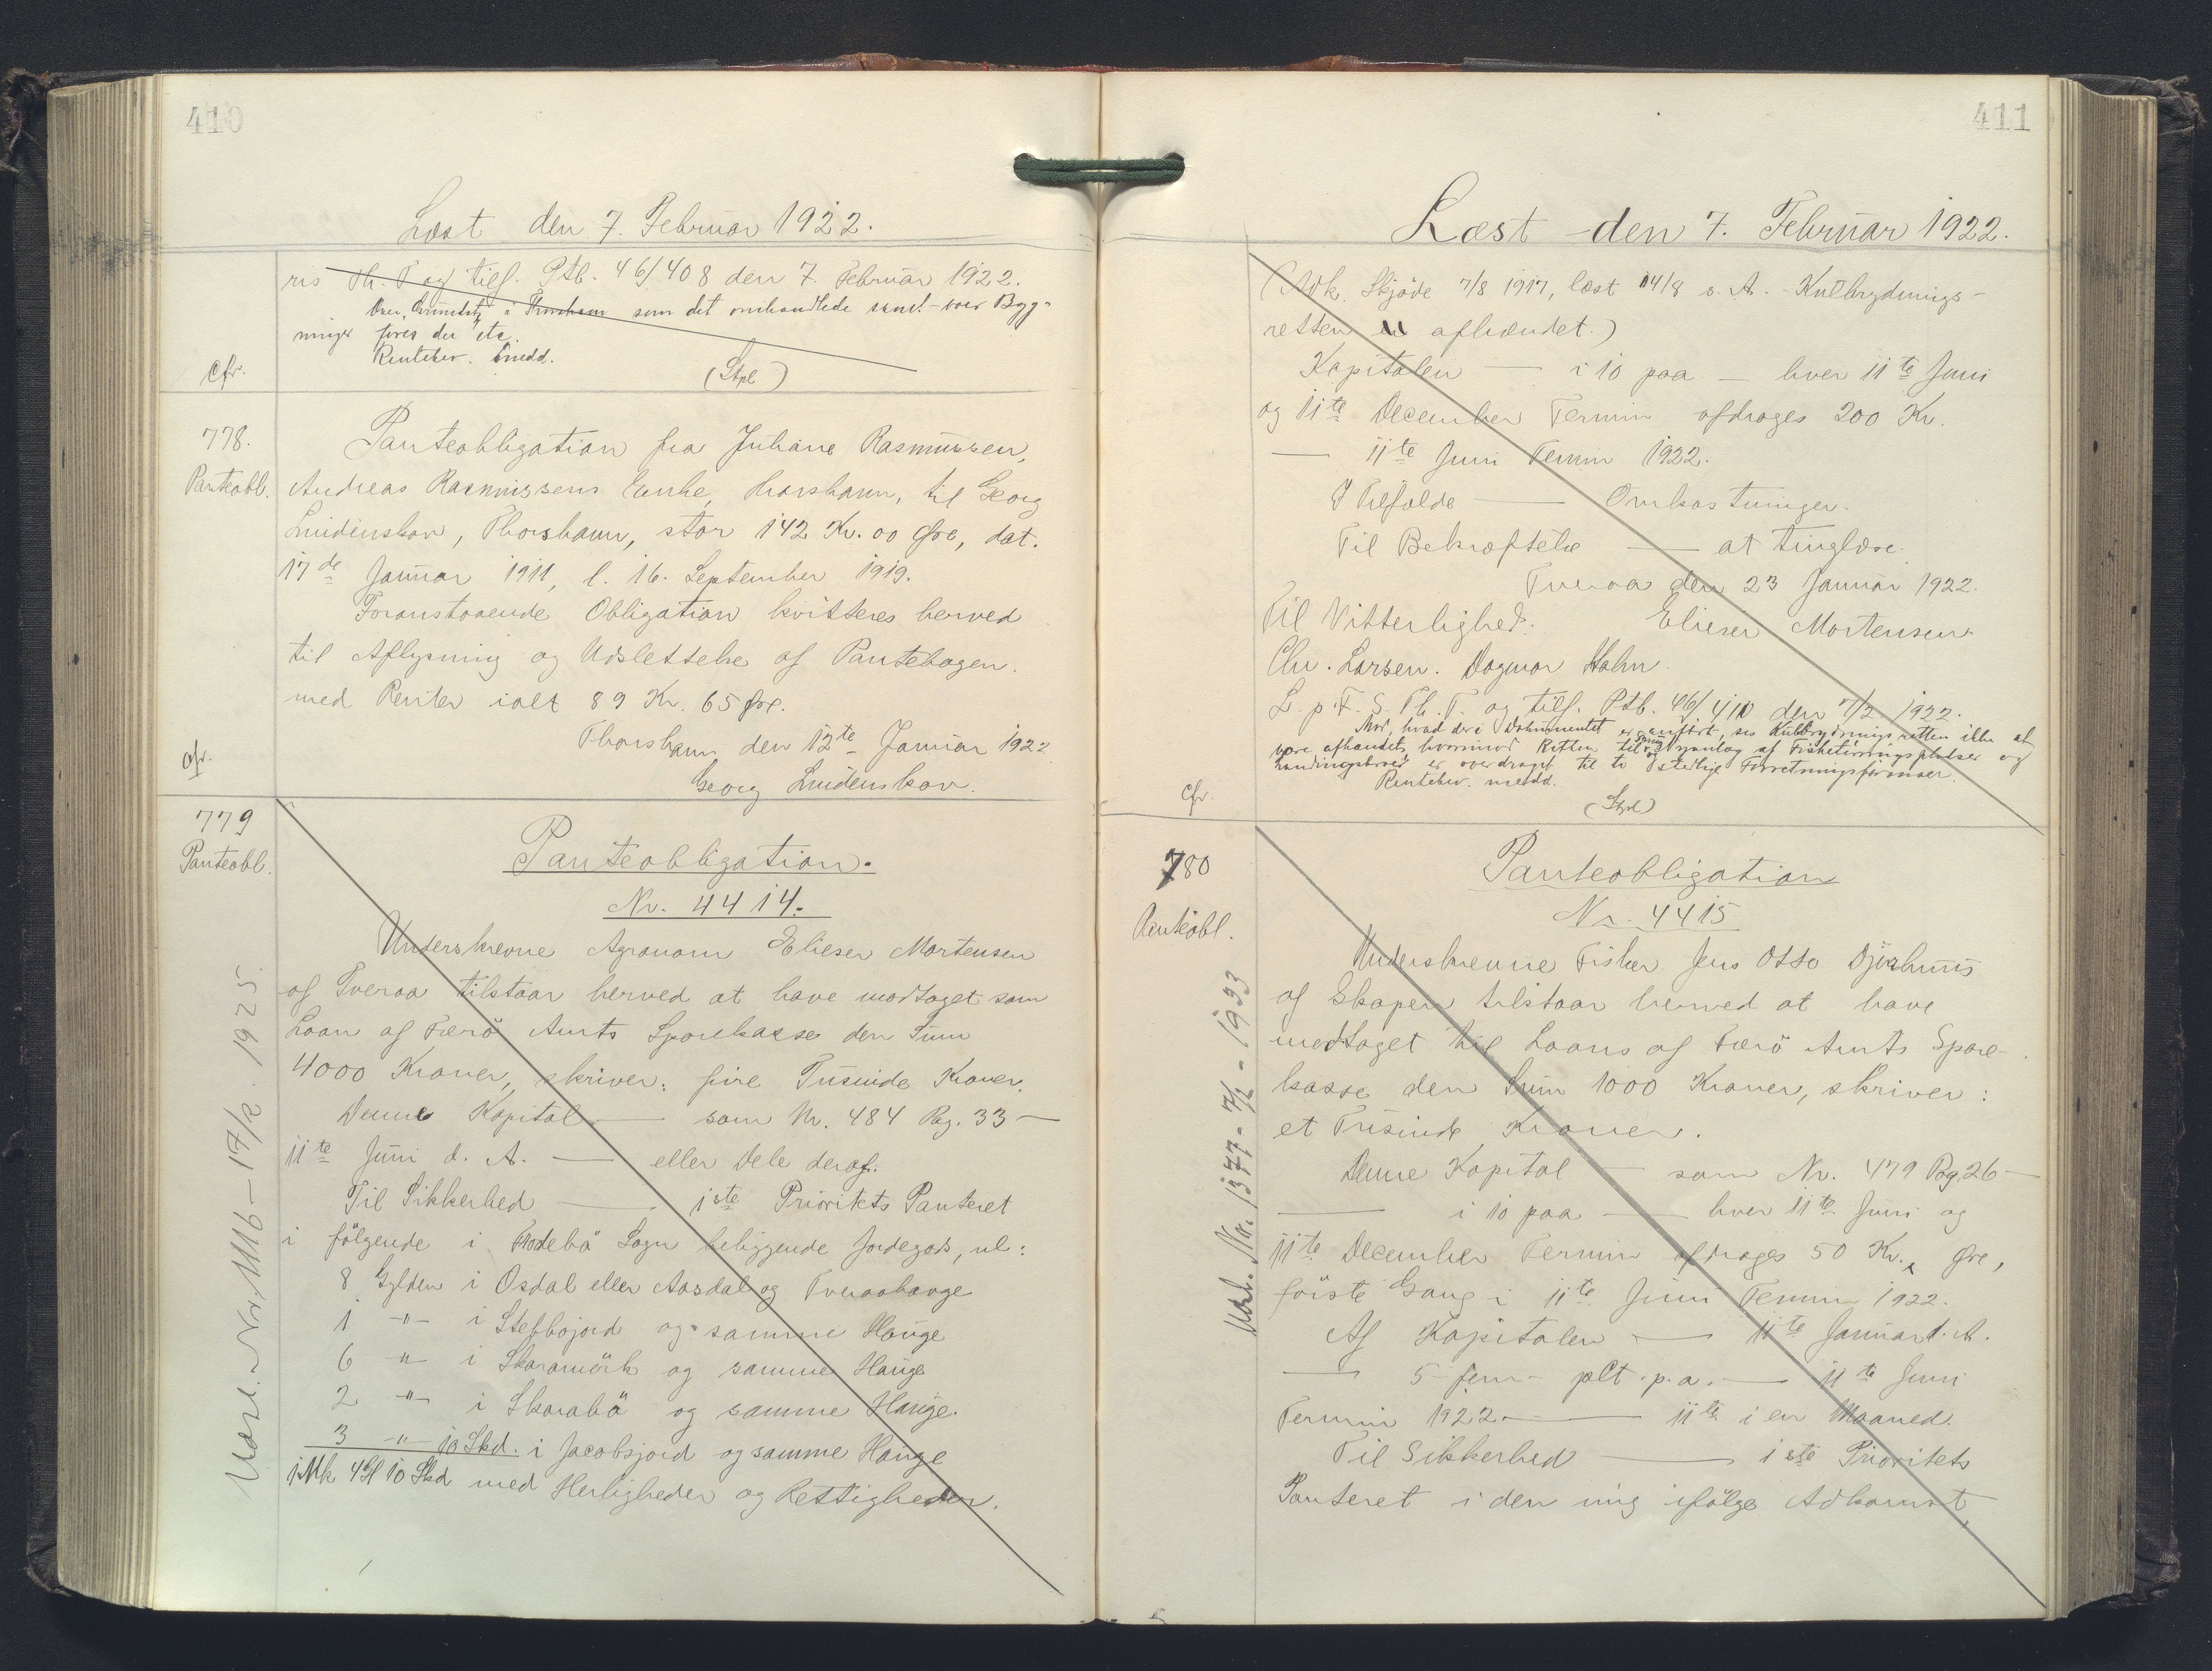 410
Læst den 7. Februar 1922.
res Th. T og tilf. Ptb. 46/408 den 7. Februar 1922.
som det omhandlede saml. Byg-
ninger føres der etc.
Rentebev. medd.
cfr.
(Stpl)
778.
Panteobl.
Panteobligation fra Juliane Rasmussen,
Andreas Rasmussens Enke, Thorshavn, til Georg
Lindenskov, Thorshavn, stor 142 Kr. 00 Øre, dat.
17de Januar 1911, l. 16. September 1919.
Foranstaaende Obligation kvitteres herved
til Aflysning og Udslettelse af Pantebogen.
med Renter ialt 89 Kr. 65 Øre.
Thorshavn den 12te Januar 1922
Georg Lindenskov.
cfr.
779
Panteobl.
Panteobligation.
Nr. 4414.
Underskrevne Agronom Elieser Mortensen
af Tveraa tilstaar herved at have modtaget som
Laan af Færö Amts Sparekasse den Sum
4000 Kroner, skriver: fire Tusinde Kroner.
Denne Kapital — som Nr. 484 Pag. 33 —
11te Juni d. A. — eller Dele deraf.
Til Sikkerhed — 1ste Prioritets Panteret
i fölgende i Frodebö Sogn beliggende Jordegods, nl:
8 Gylden i Osdal eller Aasdal og Tveraahauge
1 -"- i Stebbajord og samme Hauge
6 -"- i Skaramörk og samme Hauge
2 -"- i Skarabö og samme Hauge.
3 -"- 10 Skd. i Jacobsjord og samme Hauge
1 Mk 4 Gl 10 Skd med Herligheder og Rettigheder.
Udsl. Nr. 1116 - 17/2. 1925.
411
Læst den 7. Februar 1922.
(Adk. Skjöde 7/8 1917, læst 14/8 s. A. - Kulbrydnings-
retten er afhændet.)
Kapitalen — i 10 paa — hver 11te Juni
og 11te December Termin afdrages 200 Kr.
— 11te Juni Termin 1922.
I Tilfælde — Omkostninger.
Til Bekræftelse — at tinglæse.
Tveraa den 23 Januar 1922.
Til Vitterlighed: Elieser Mortensen.
Chr. Larsen. Dagmar Hahn.
L. p. F. S. Th. T. og tilf. Ptb. 46/410 den 7/2 1922.
Mod, hvad der i Dokumentet er anfört, ses Kulbrydningsretten ikke at
være afhændet, hvorimod Retten til anlæg af Fisketörringspladser og
Landingsbroer er overdraget til to Forretningsfirmaer.
Rentebev. medd.
(Stpl)
cfr.
780
Panteobl.
Panteobligation
Nr. 4415
Underskrevne Fisker Jens Otto Djurhuus
af Skapen tilstaar herved at have
modtaget til Laans af Færö Amts Spare-
kasse den Sum 1000 Kroner, skriver:
et Tusinde Kroner.
Denne Kapital — som Nr. 479 Pag. 26 —
— i 10 paa — hver 11te Juni og
11te December Termin afdrages 50 Kr. „ Øre,
förste Gang i 11te Juni Termin 1922.
Af Kapitalen — 11te Januar d. A.
— 5 - fem - pCt. p. a. — 11te Juni
Termin 1922. — 11te i en Maaned.
Til Sikkerhed — 1ste Prioritets
Panteret i den mig ifölge Adkomst,
Udsl. Nr. 1377 - 7/2 - 1933